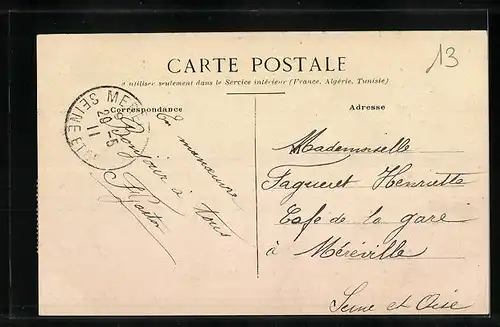 13
CARTE POSTALE
à utiliser seulement dans le Service intérieur (France, Algérie, Tunisie)
Correspondance
Adresse
MER
29-5
11
SEINE ET
En manœuvre
Bonjour à tous
Gaston
Mademoiselle
Fagueret Henriette
Cafe de la gare
à Méréville
Seine et Oise